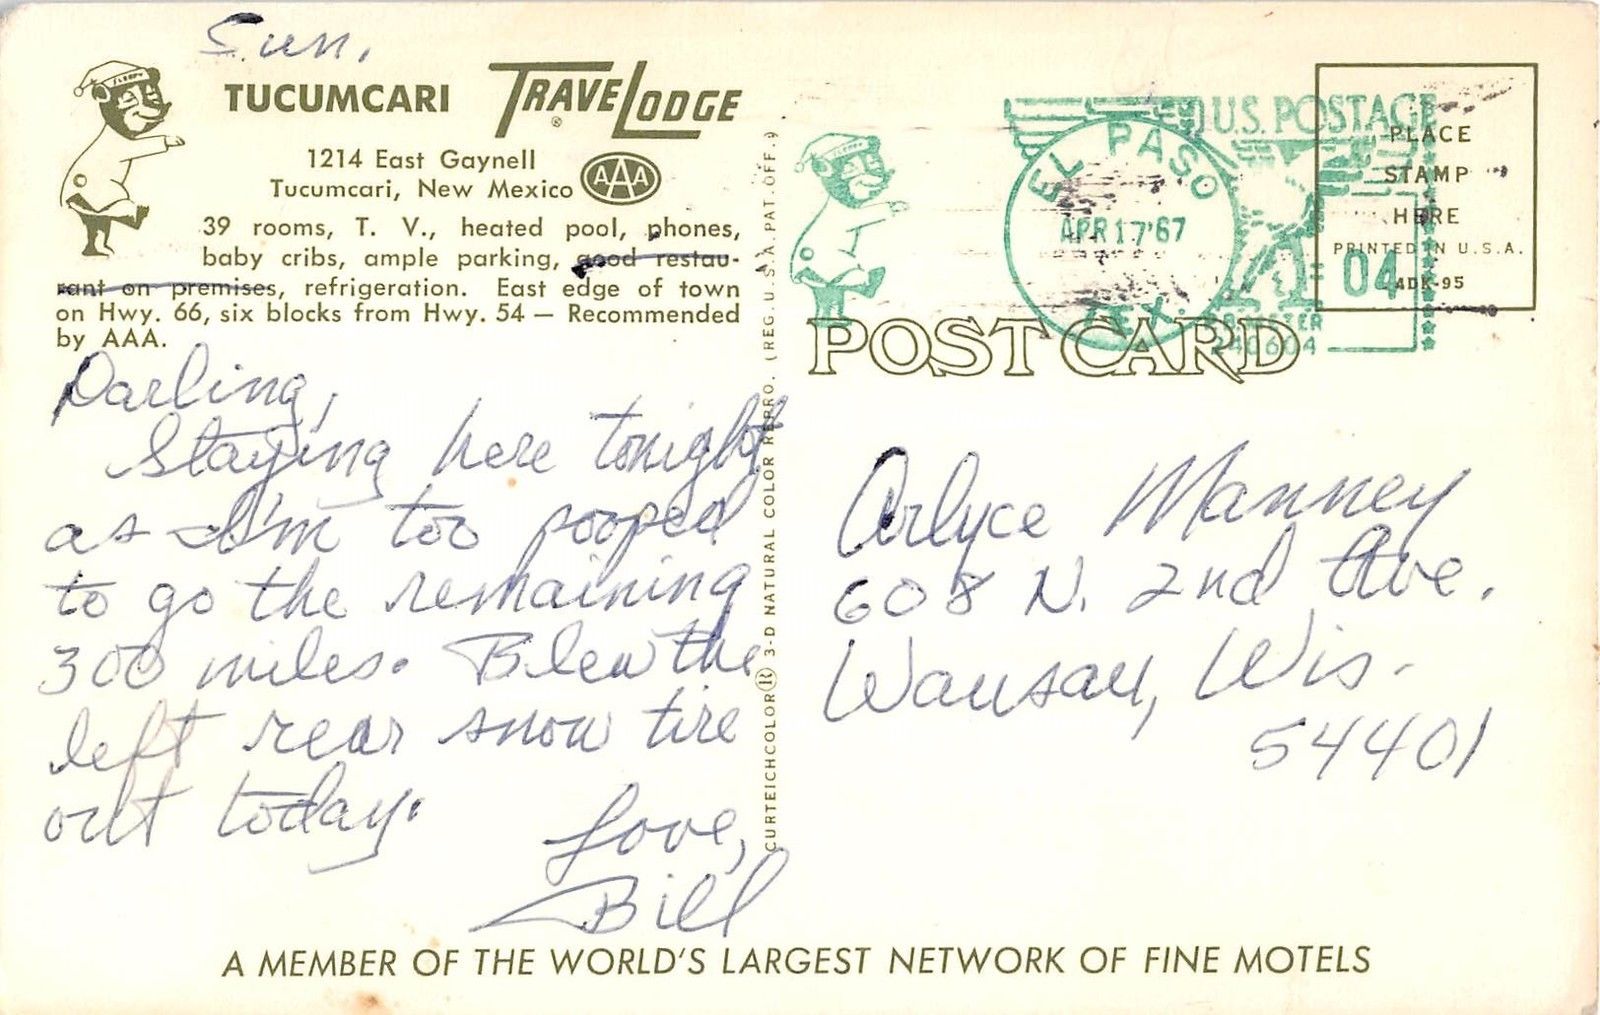 Sun.
SLEEPY
TUCUMCARI TRAVELODGE
®
1214 East Gaynell
Tucumcari, New Mexico AAA
39 rooms, T. V., heated pool, phones,
baby cribs, ample parking, good restau-
rant on premises, refrigeration. East edge of town
on Hwy. 66, six blocks from Hwy. 54 — Recommended
by AAA.
Darling,
Staying here tonight
as I'm too pooped
to go the remaining
300 miles. Blew the
left rear snow tire
out today.
Love,
Bill
CURTEICHCOLOR® 3-D NATURAL COLOR REPRO. (REG. U.S.A. PAT. OFF.)
SLEEPY
EL PASO
APR 17 '67
TEX.
U.S. POSTAGE
04
PLACE
STAMP
HERE
PRINTED IN U.S.A.
4DK-95
240604
POST CARD
Arlyce Manney
608 N. 2nd Ave.
Wausau, Wis.
54401
A MEMBER OF THE WORLD'S LARGEST NETWORK OF FINE MOTELS